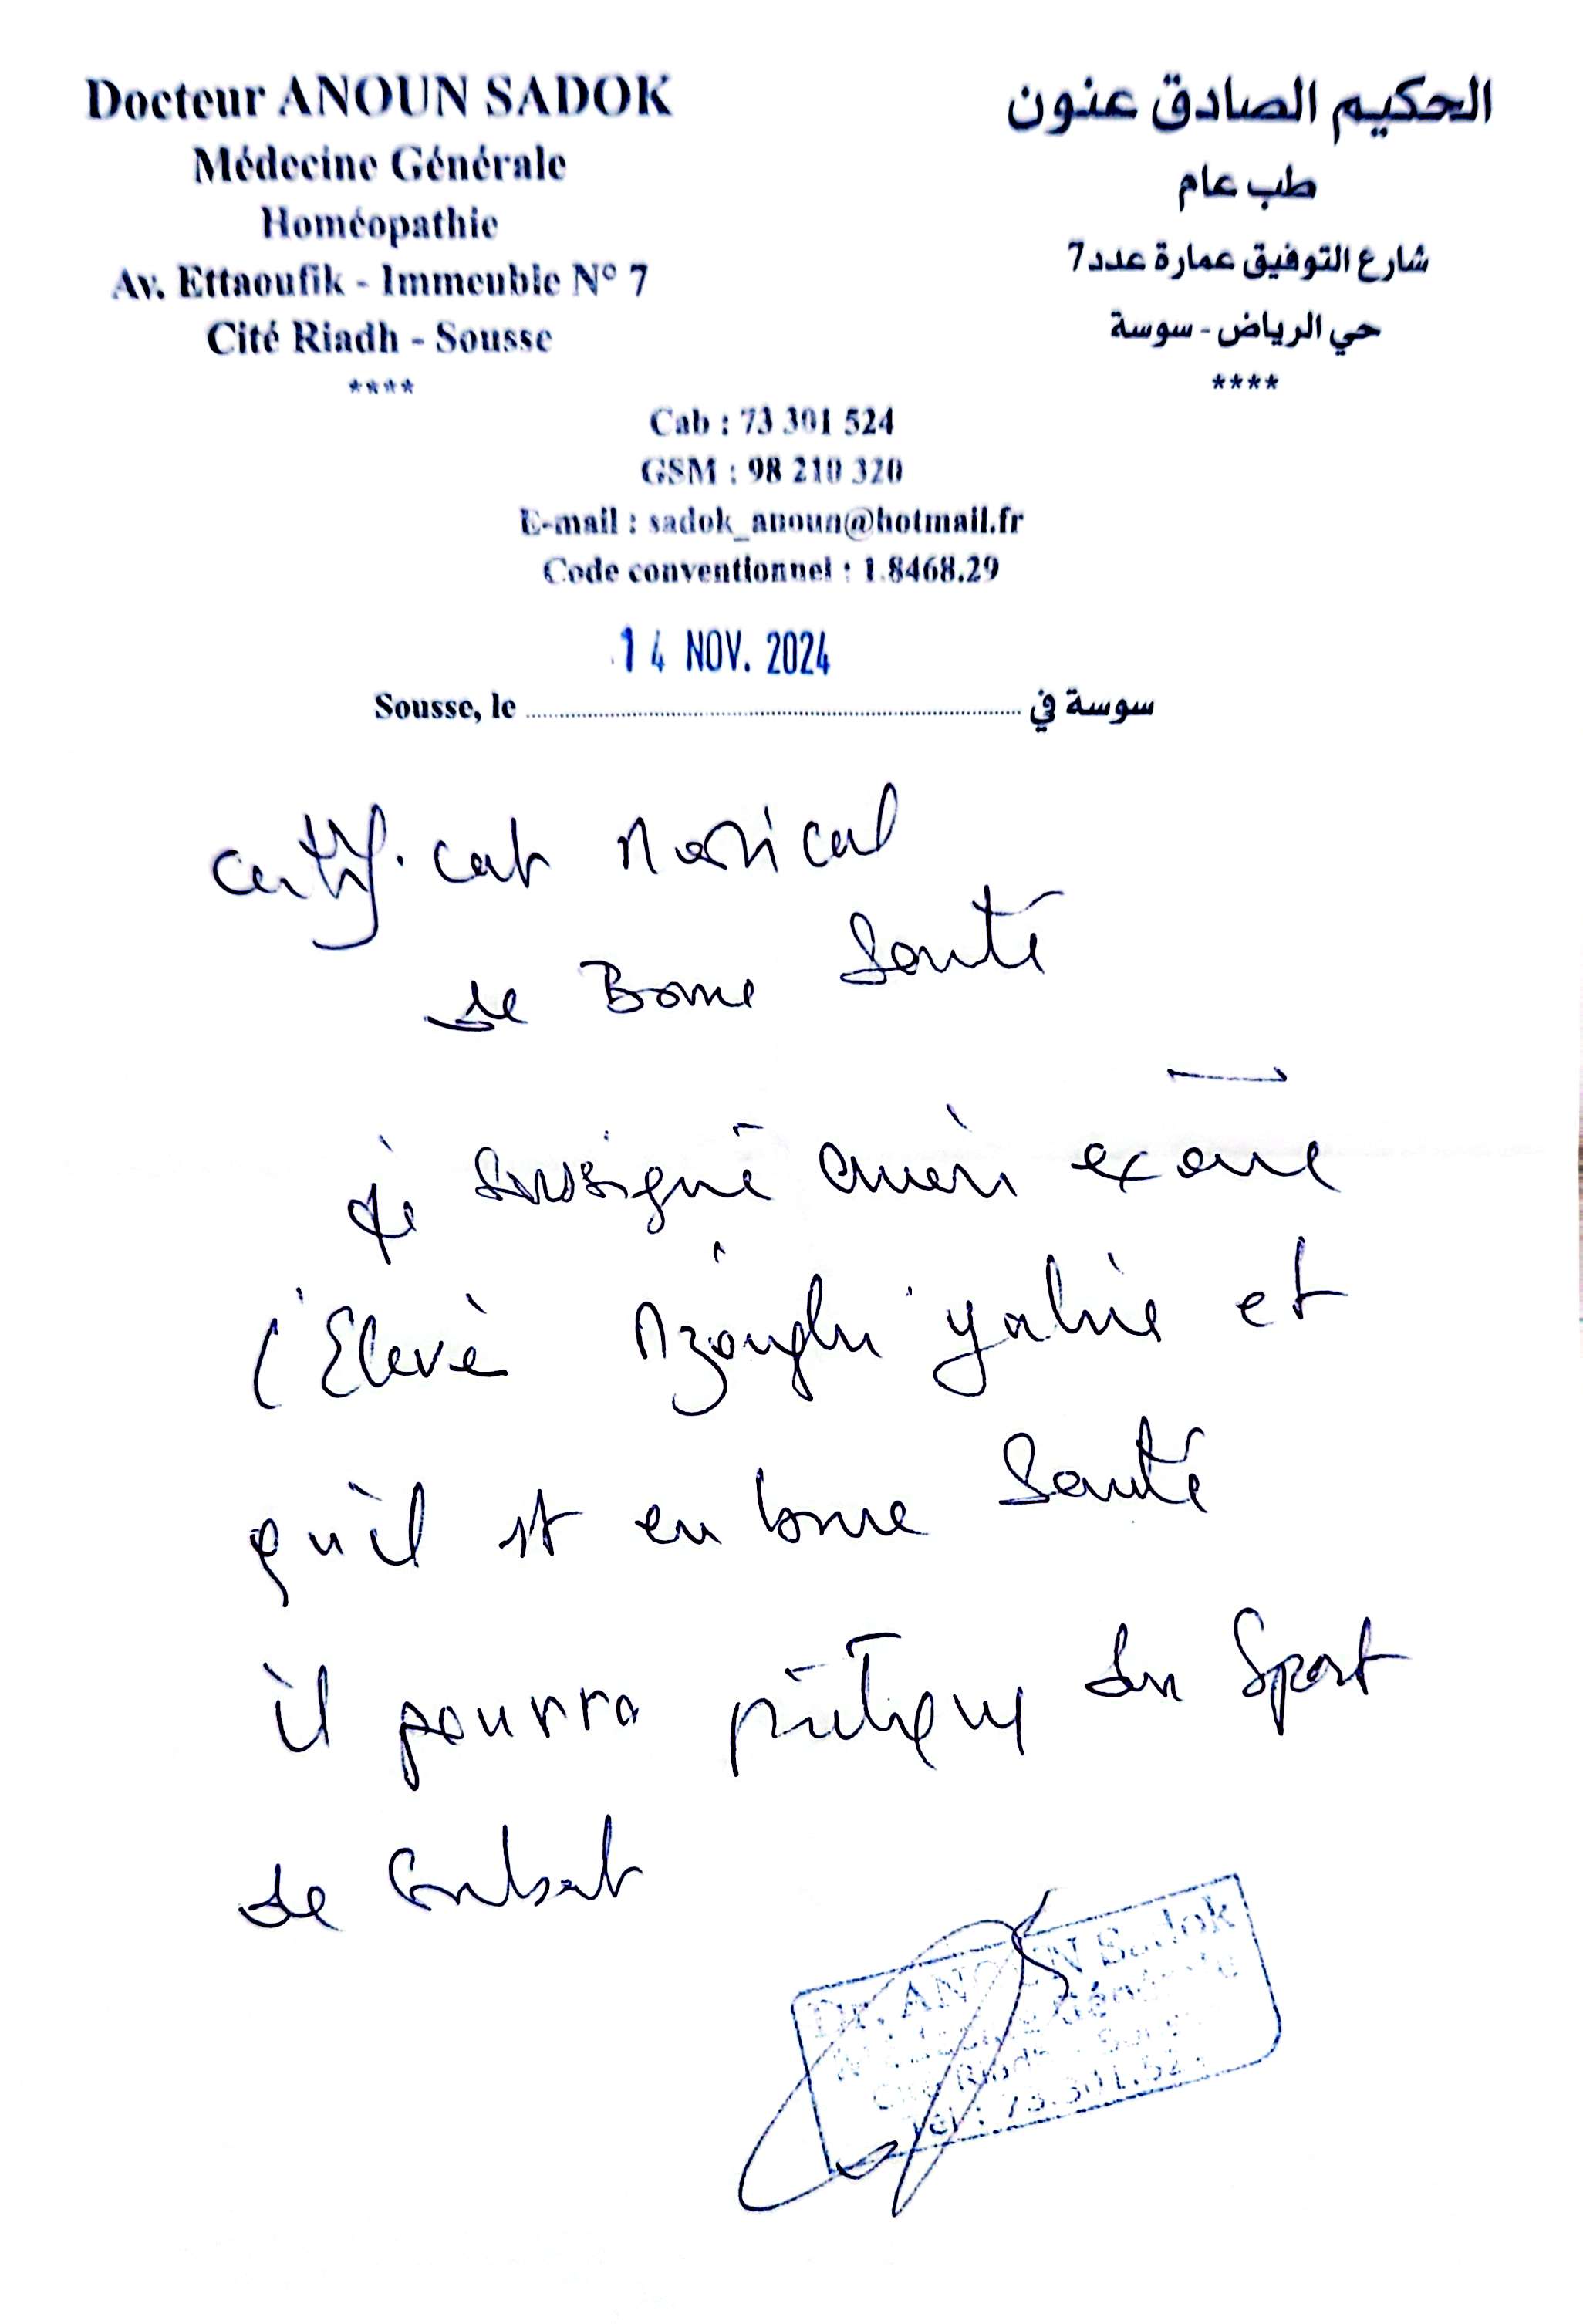 Docteur ANOUN SADOK
Médecine Générale
Homéopathie
Av. Ettaoufik - Immeuble N° 7
Cité Riadh - Sousse
****
الحكيم الصادق عنون
طب عام
شارع التوفيق عمارة عدد7
حي الرياض - سوسة
****
Cab : 73 301 524
GSM : 98 210 320
E-mail : sadok_anoun@hotmail.fr
Code conventionnel : 1.8468.29
14 NOV. 2024
Sousse, le سوسة في
Certificat Medical
de Bonne Santé
Je soussigné avoir examiné
l'Elevè yahia et
qu'il est en bonne Santé
il pourra pratiquer un Sport
de Combat
Dr. ANOUN Sadok
Médecine Générale
Cité Riadh - Sousse
Tél : 73.301.52